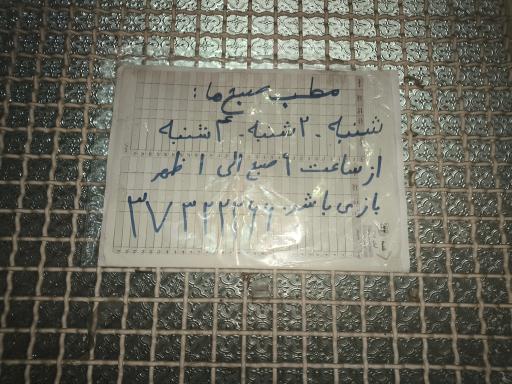 مطب صبح ها :
شنبه . ۲ شنبه . ۴ شنبه
از ساعت ۹ صبح الی ۱ ظهر
بازمی باشد